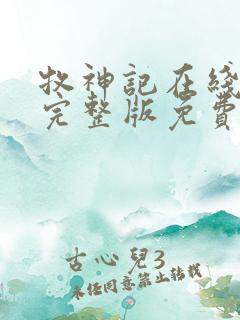 牧神記在綫
完整版免費
古心兒3
未經同意禁止轉載